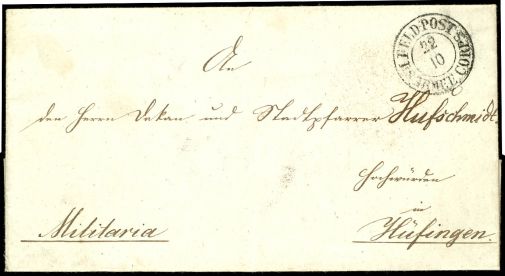 FELD-POST S.
22
10
ARMEE CORPS
An
den Herrn Dekan und Stadtpfarrer Hufschmidt.
Hochwürden
in
Militaria
Hüfingen.